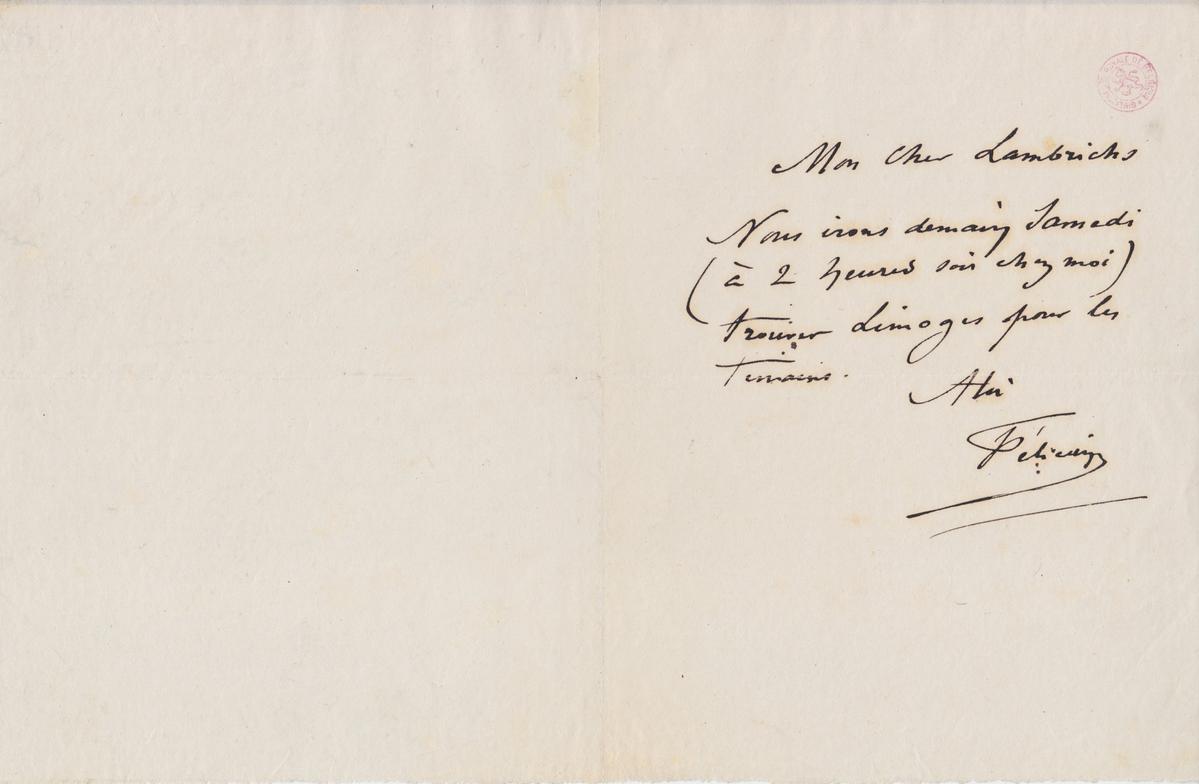 Mon Cher Lambrichs
Nous irons demain Samedi
(à 2 heures soir chez moi)
trouver Limoges pour les
Terrains.
Félicien